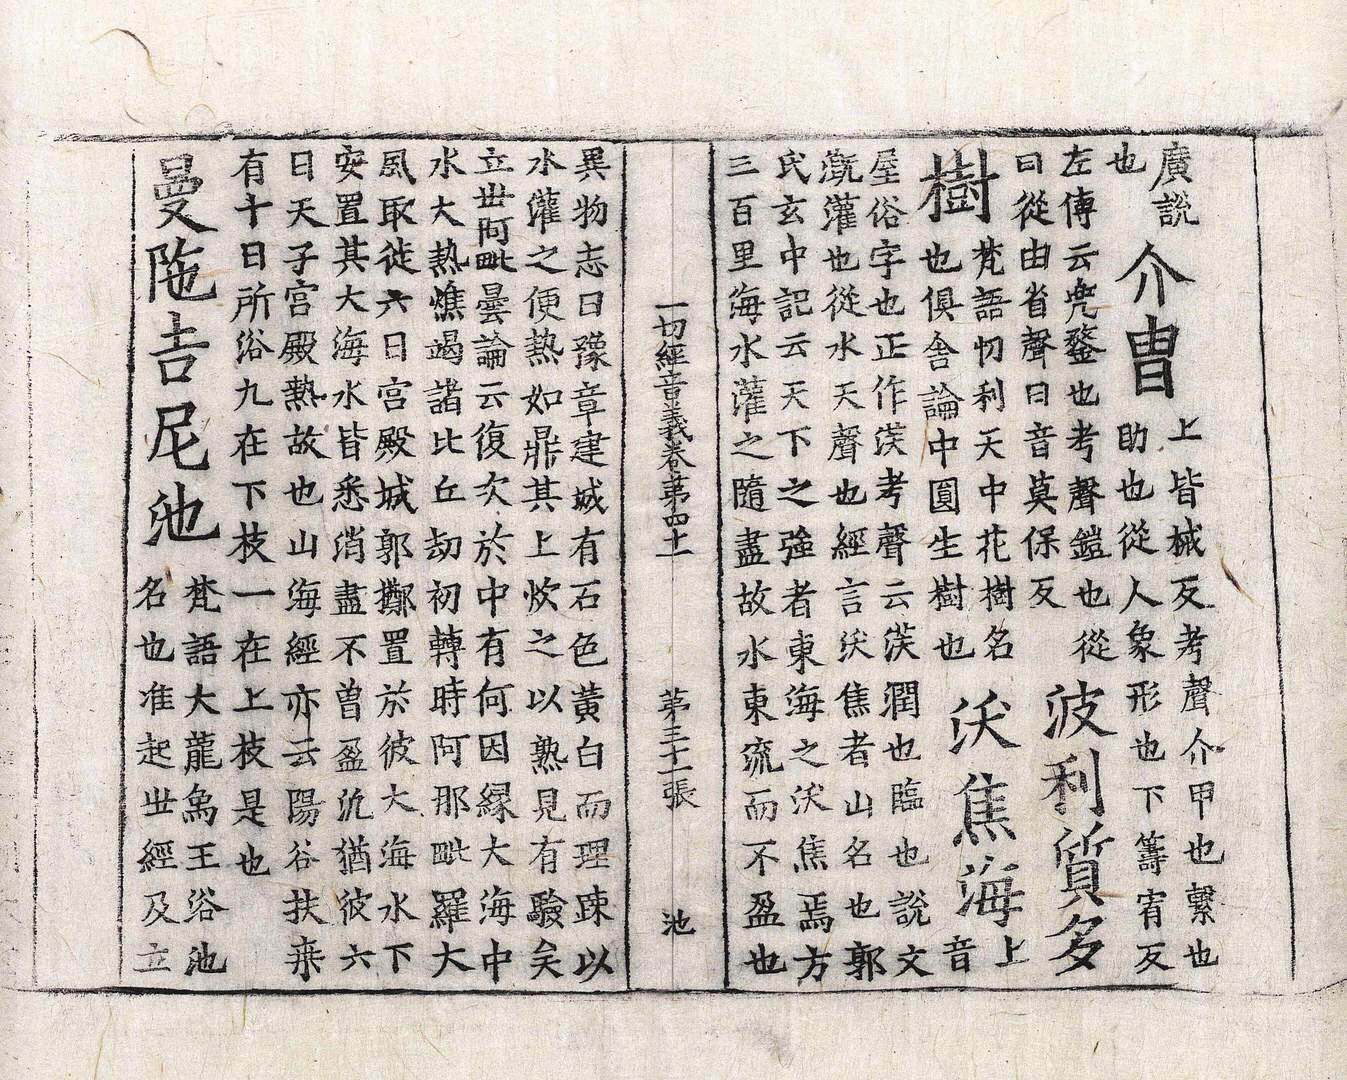 廣說
也
介冑
上皆械反考聲介甲也繫也
助也從人象形也下籌宥反
左傳云兜鍪也考聲鎧也從
曰從由省聲曰音莫保反
波利質多
樹
梵語忉利天中花樹名
也俱舍論中圓生樹也
沃焦海
上
音
屋俗字也正作考聲云潤也臨也說文
溉灌也從水天聲也經言沃焦者山名也郭
氏玄中記云天下之強者東海之沃焦焉方
三百里海水灌之隨盡故水東流而不盈也
一切經音義卷第四十一 第三十一張 池
異物志曰豫章建城有石色黃白而理疎以
水灌之便熱如鼎其上炊之以熟見有驗矣
立世阿毗曇論云復次於中有何因緣大海中
水大熱燋竭諸比丘劫初轉時阿那毗羅大
風取徙六日宮殿城郭擲置於彼大海水下
安置其大海水皆悉消盡不曾盈沉猶彼六
日天子宮殿熱故也山海經亦云陽谷扶桒
有十日所浴九在下枝一在上枝是也
曼陁吉尼池
梵語大龍象王浴池
名也准起世經及立